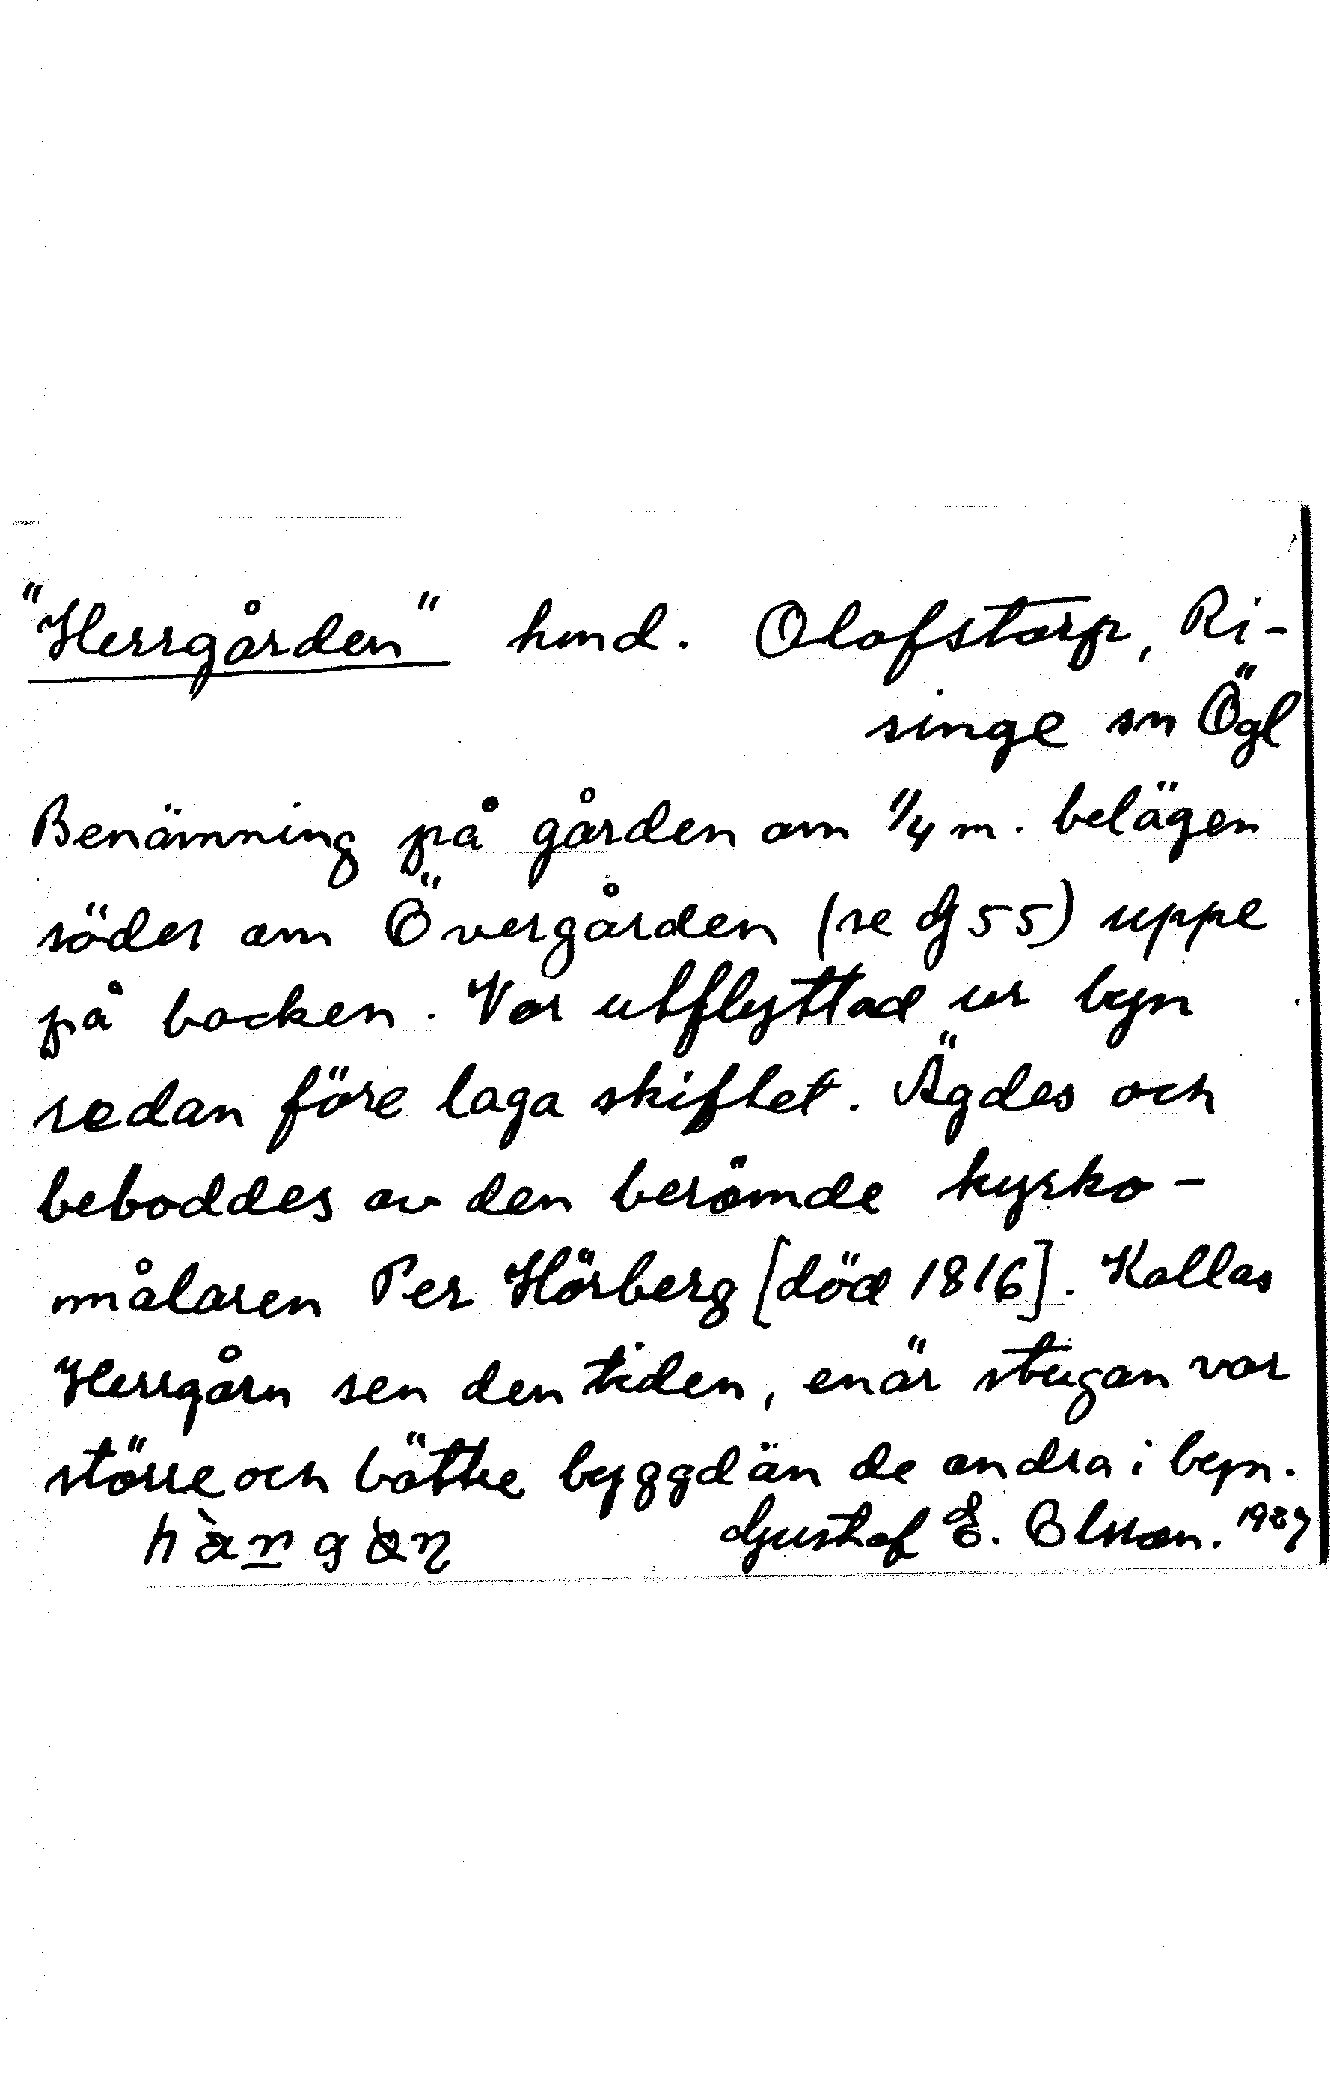 "Herrgården" hmd. Olofstorp, Ri-
singe sn Ögl
Benämning på gården om 1/4 m. belägen
söder om Övergården (se G 55) uppe
på backen. Var utflyttad ur byn
redan före laga skiftet. Ägdes och
beboddes av den berömde kyrko-
målaren Per Hörberg [död 1816]. Kallas
Herrgårn sen den tiden, enär stugan var
större och bättre byggd än de andra i byn.
Gustaf E. Olsson.